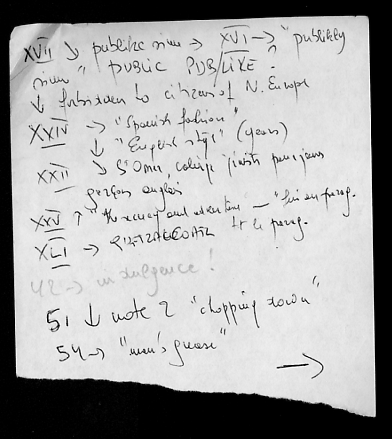 XVII ↓ publike sinne → XVI → "publikly
sinne" PUBLIC PUBLIKE?
↓ forbidden to citizens of N. Europe
XXIV → "Spanish fashion"
↓ "English style" (years)
XXII ↓ S' Omer, collège jésuite pour jeunes
garçons anglais
XXV ↑ "the and adventure — "fin en parag.
XLI → QUETZALCOATL le parag.
42 → indulgence!
51 ↓ note 2 "chopping down"
54 → "man's grease"
→